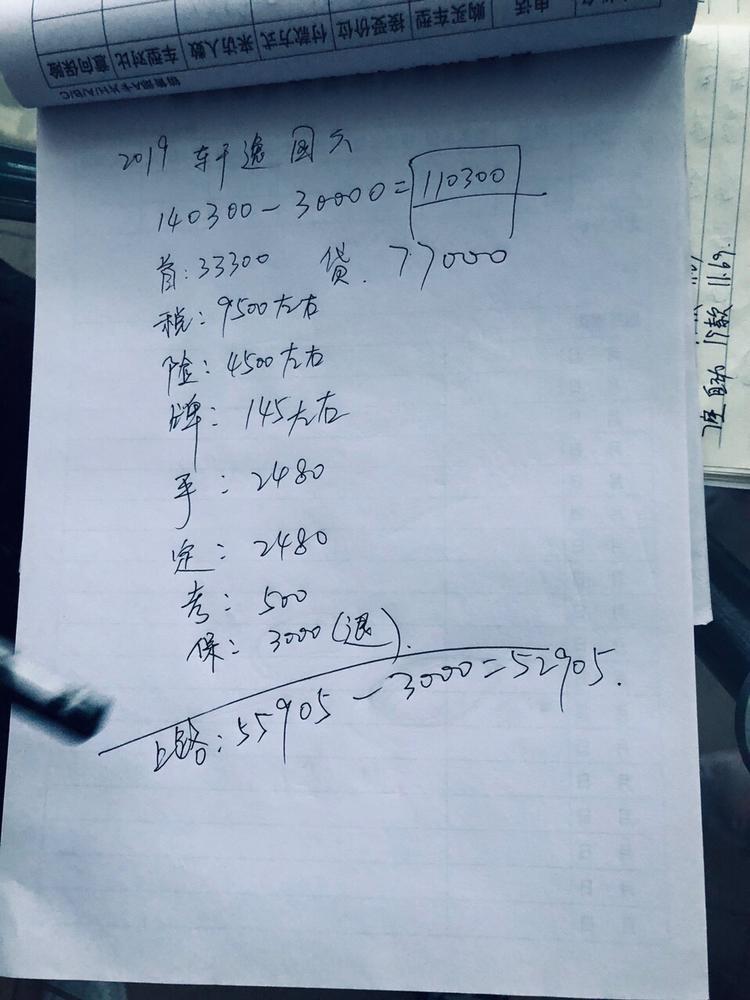 意向保险 车型对比 来访人数 付款方式 接受价位 购买车型 电话
2019 轩逸 国六
140300-30000=110300
首:33300 贷.77000
税:9500左右
险:4500左右
牌:145左右
手:2480
定:2480
考:500
保:3000(退).
上路:55905-3000=52905.
自动 19款 11.69